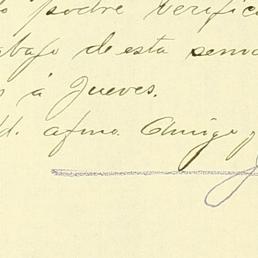 podré verific
abajo de esta sema
s á Jueves.
d. afmo. Amigo y